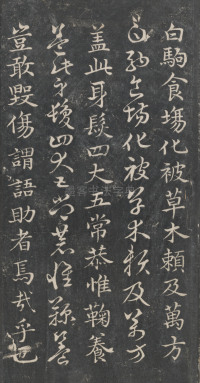 白駒食塲化被草木賴及萬方
白駒食塲化被草木賴及萬方
蓋此身髮四大五常恭惟鞠養
蓋此身髮四大五常恭惟鞠養
豈敢毀傷謂語助者焉哉乎也